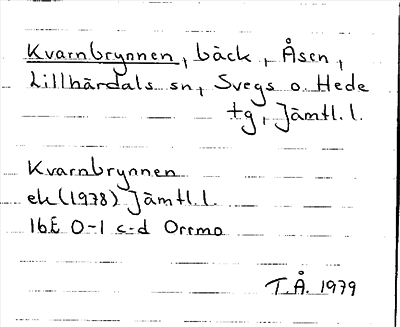 Kvarnbrynnen, bäck, Åsen,
Lillhärdals sn, Svegs o. Hede
tg, Jämtl. l.
Kvarnbrynnen
ek (1978) Jämtl. l.
16E 0-1 c-d Orrmo
T.Å. 1979